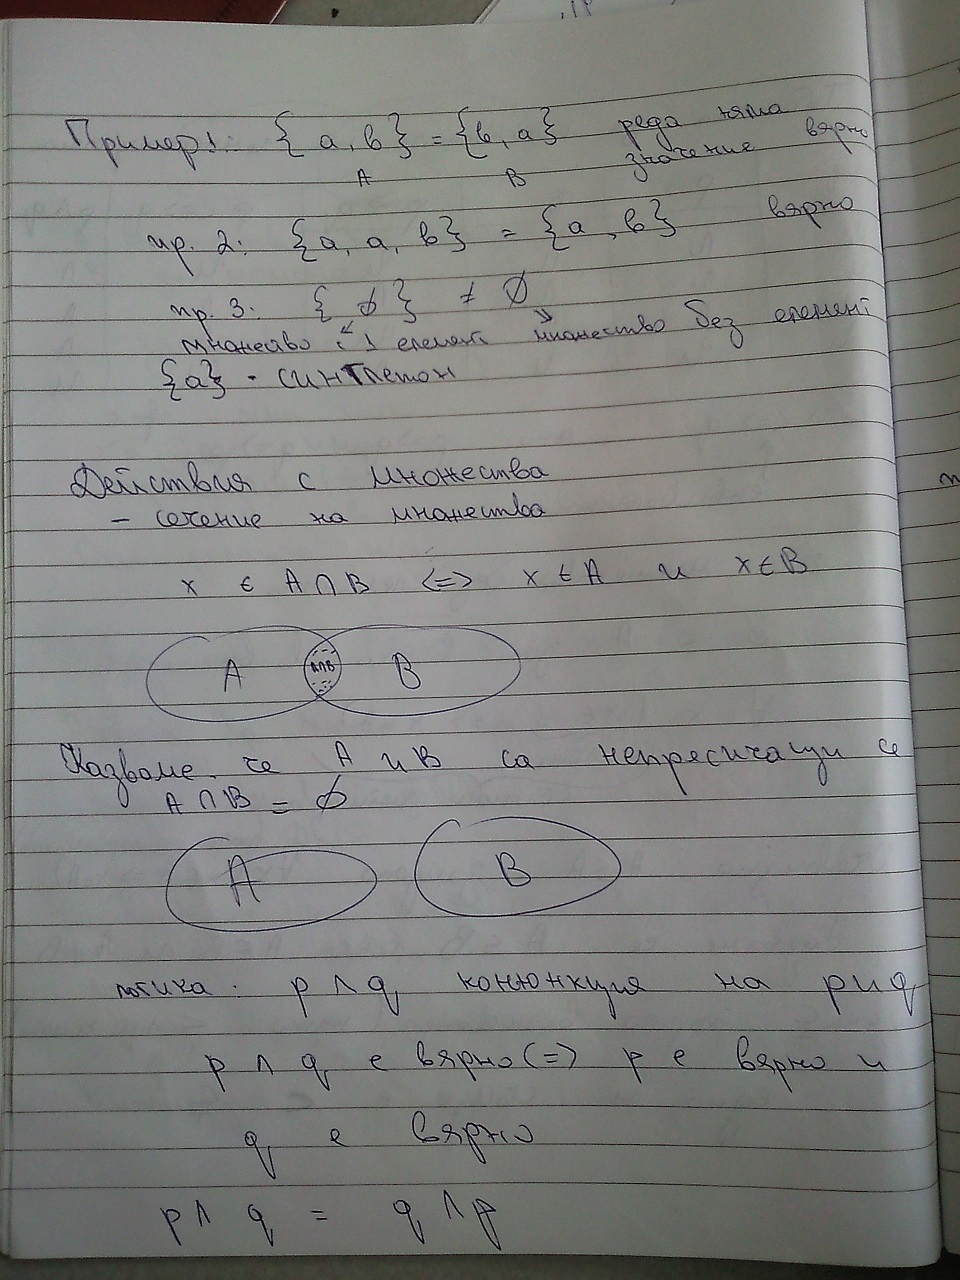 Пример 1: { a, b } = { b, a } реда няма значение вярно
A B
пр. 2: { a, a, b } = { a, b } вярно
пр. 3. { ∅ } ≠ ∅
множество с 1 елемент множество без елемент
{a} - синглетон
Действия с множества
- сечение на множества
x ∈ A ∩ B <=> x ∈ A и x ∈ B
A A∩B B
Казваме, че A и B са непресичащи се
A ∩ B = ∅
A B
логика. p ∧ q конюнкция на p и q
p ∧ q е вярно <=> p е вярно и
q е вярно
p ∧ q = q ∧ p